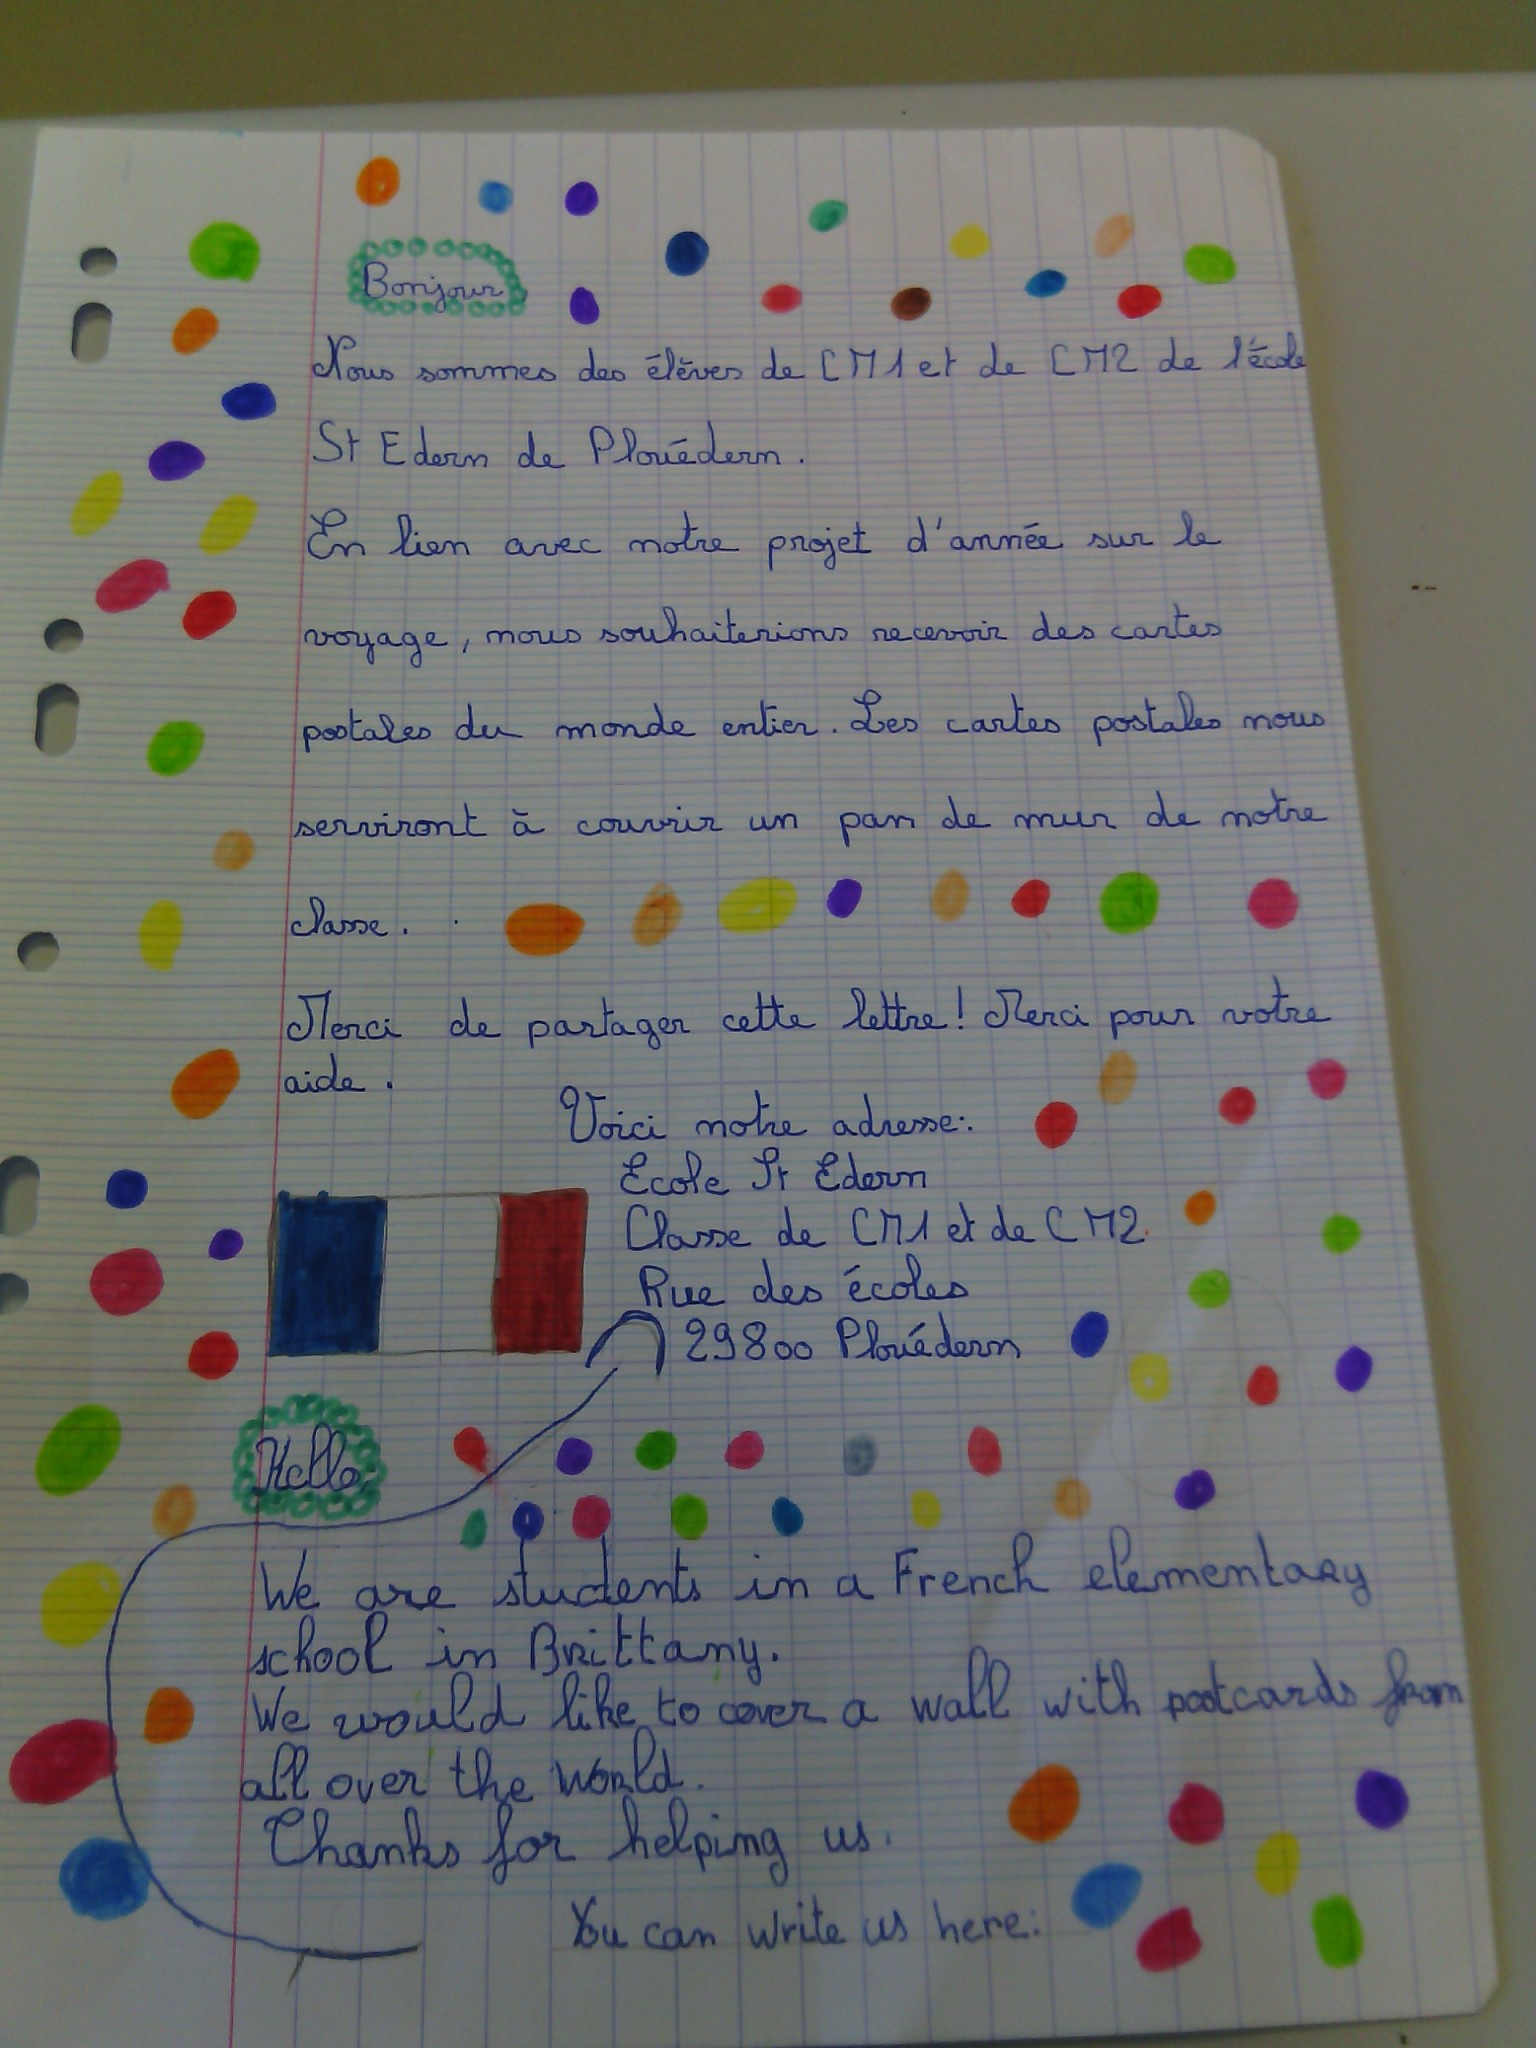 Bonjour
Nous sommes des élèves de CM1 et de CM2 de l'école
St Edern de Plouédern.
En lien avec notre projet d'année sur le
voyage, nous souhaiterions recevoir des cartes
postales du monde entier. Les cartes postales nous
serviront à couvrir un pan de mur de notre
classe.
Merci de partager cette lettre! Merci pour votre
aide.
Voici notre adresse:
Ecole St Edern
Classe de CM1 et de CM2
Rue des écoles
29800 Plouédern
Hello,
We are students in a French elementary
school in Brittany.
We would like to cover a wall with postcards from
all over the world.
Thanks for helping us.
You can write us here: